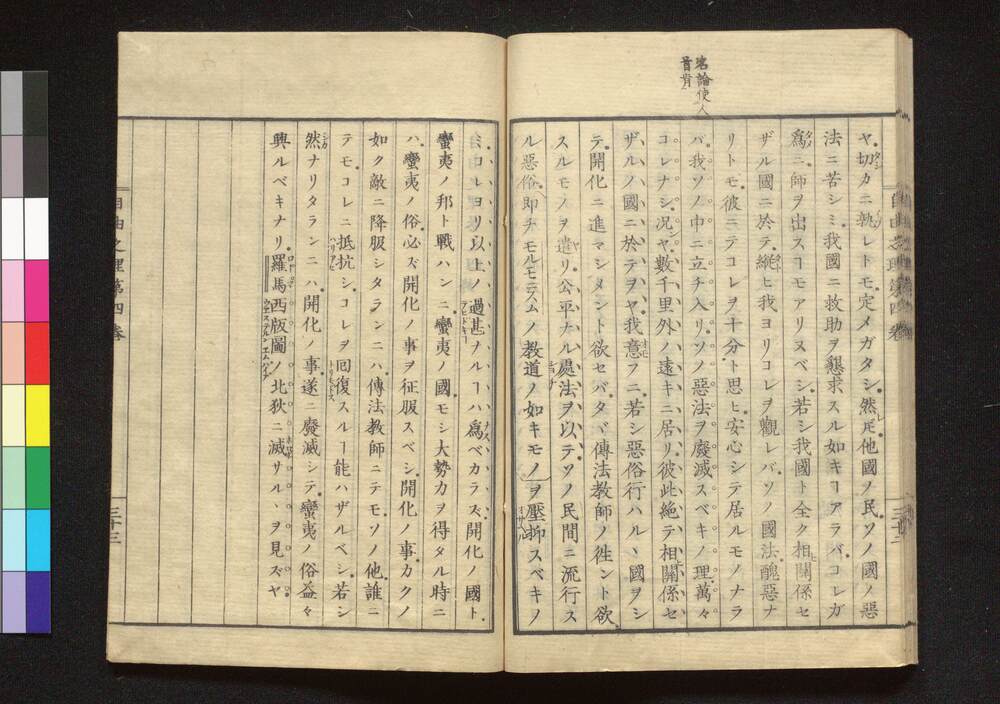 宻論使人
首肯
ヤ切カニ執レトモ定メガタシ然𪜈他國ノ民ソノ國ノ惡
法ニ苦シミ我國ニ救助ヲ懇求スル如キヿアラバコレガ
爲ニ師ヲ出スヿモアリヌベシ若シ我國ト全ク相關係セ
ザル國ニ於テ縱ヒ我ヨリコレヲ觀レバソノ國法醜惡ナ
リトモ彼ニテコレヲ十分ト思ヒ安心シテ居ルモノナラ
バ我ソノ中ニ立チ入リソノ惡法ヲ廢滅スベキノ理萬々
コレナシ況ヤ數千里外ノ遠キニ居リ彼此絶テ相關係セ
ザルノ國ニ於テヲヤ我意フニ若シ惡俗行ハルヽ國ヲシ
テ開化ニ進マシメント欲セバタヾ傳法教師ノ徃ント欲
スルモノヲ遣リ公平ナル處法ヲ以テソノ民間ニ流行ス
ル惡俗即チモルモニズムノ教道ノ如キモノヲ壓抑スベキノ
自由之理第四卷
三十三
ミコレヨリ以上ノ過甚ナルヿハ爲ベカラズ開化ノ國ト
蠻夷ノ邦ト戰ハンニ蠻夷ノ國モシ大勢力ヲ得タル時ニ
ハ蠻夷ノ俗必ズ開化ノ事ヲ征服スベシ開化ノ事カクノ
如ク敵ニ降服シタランニハ傳法教師ニテモソノ他誰ニ
テモコレニ抵抗シコレヲ回復スルヿ能ハザルベシ若シ
然ナリタランニハ開化ノ事遂ニ廢滅シテ蠻夷ノ俗益々
興ルベキナリ羅馬西版圖ノ北狄ニ滅サルヽヲ見ズヤ
自由之理第四卷
三十三